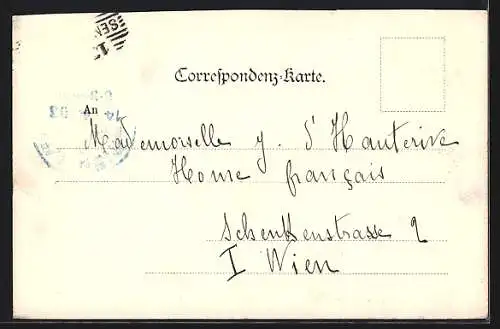 Correspondenz-Karte.
An
Mademoiselle J. d'Hauterive
Home français
Schenkenstrasse 2
I Wien